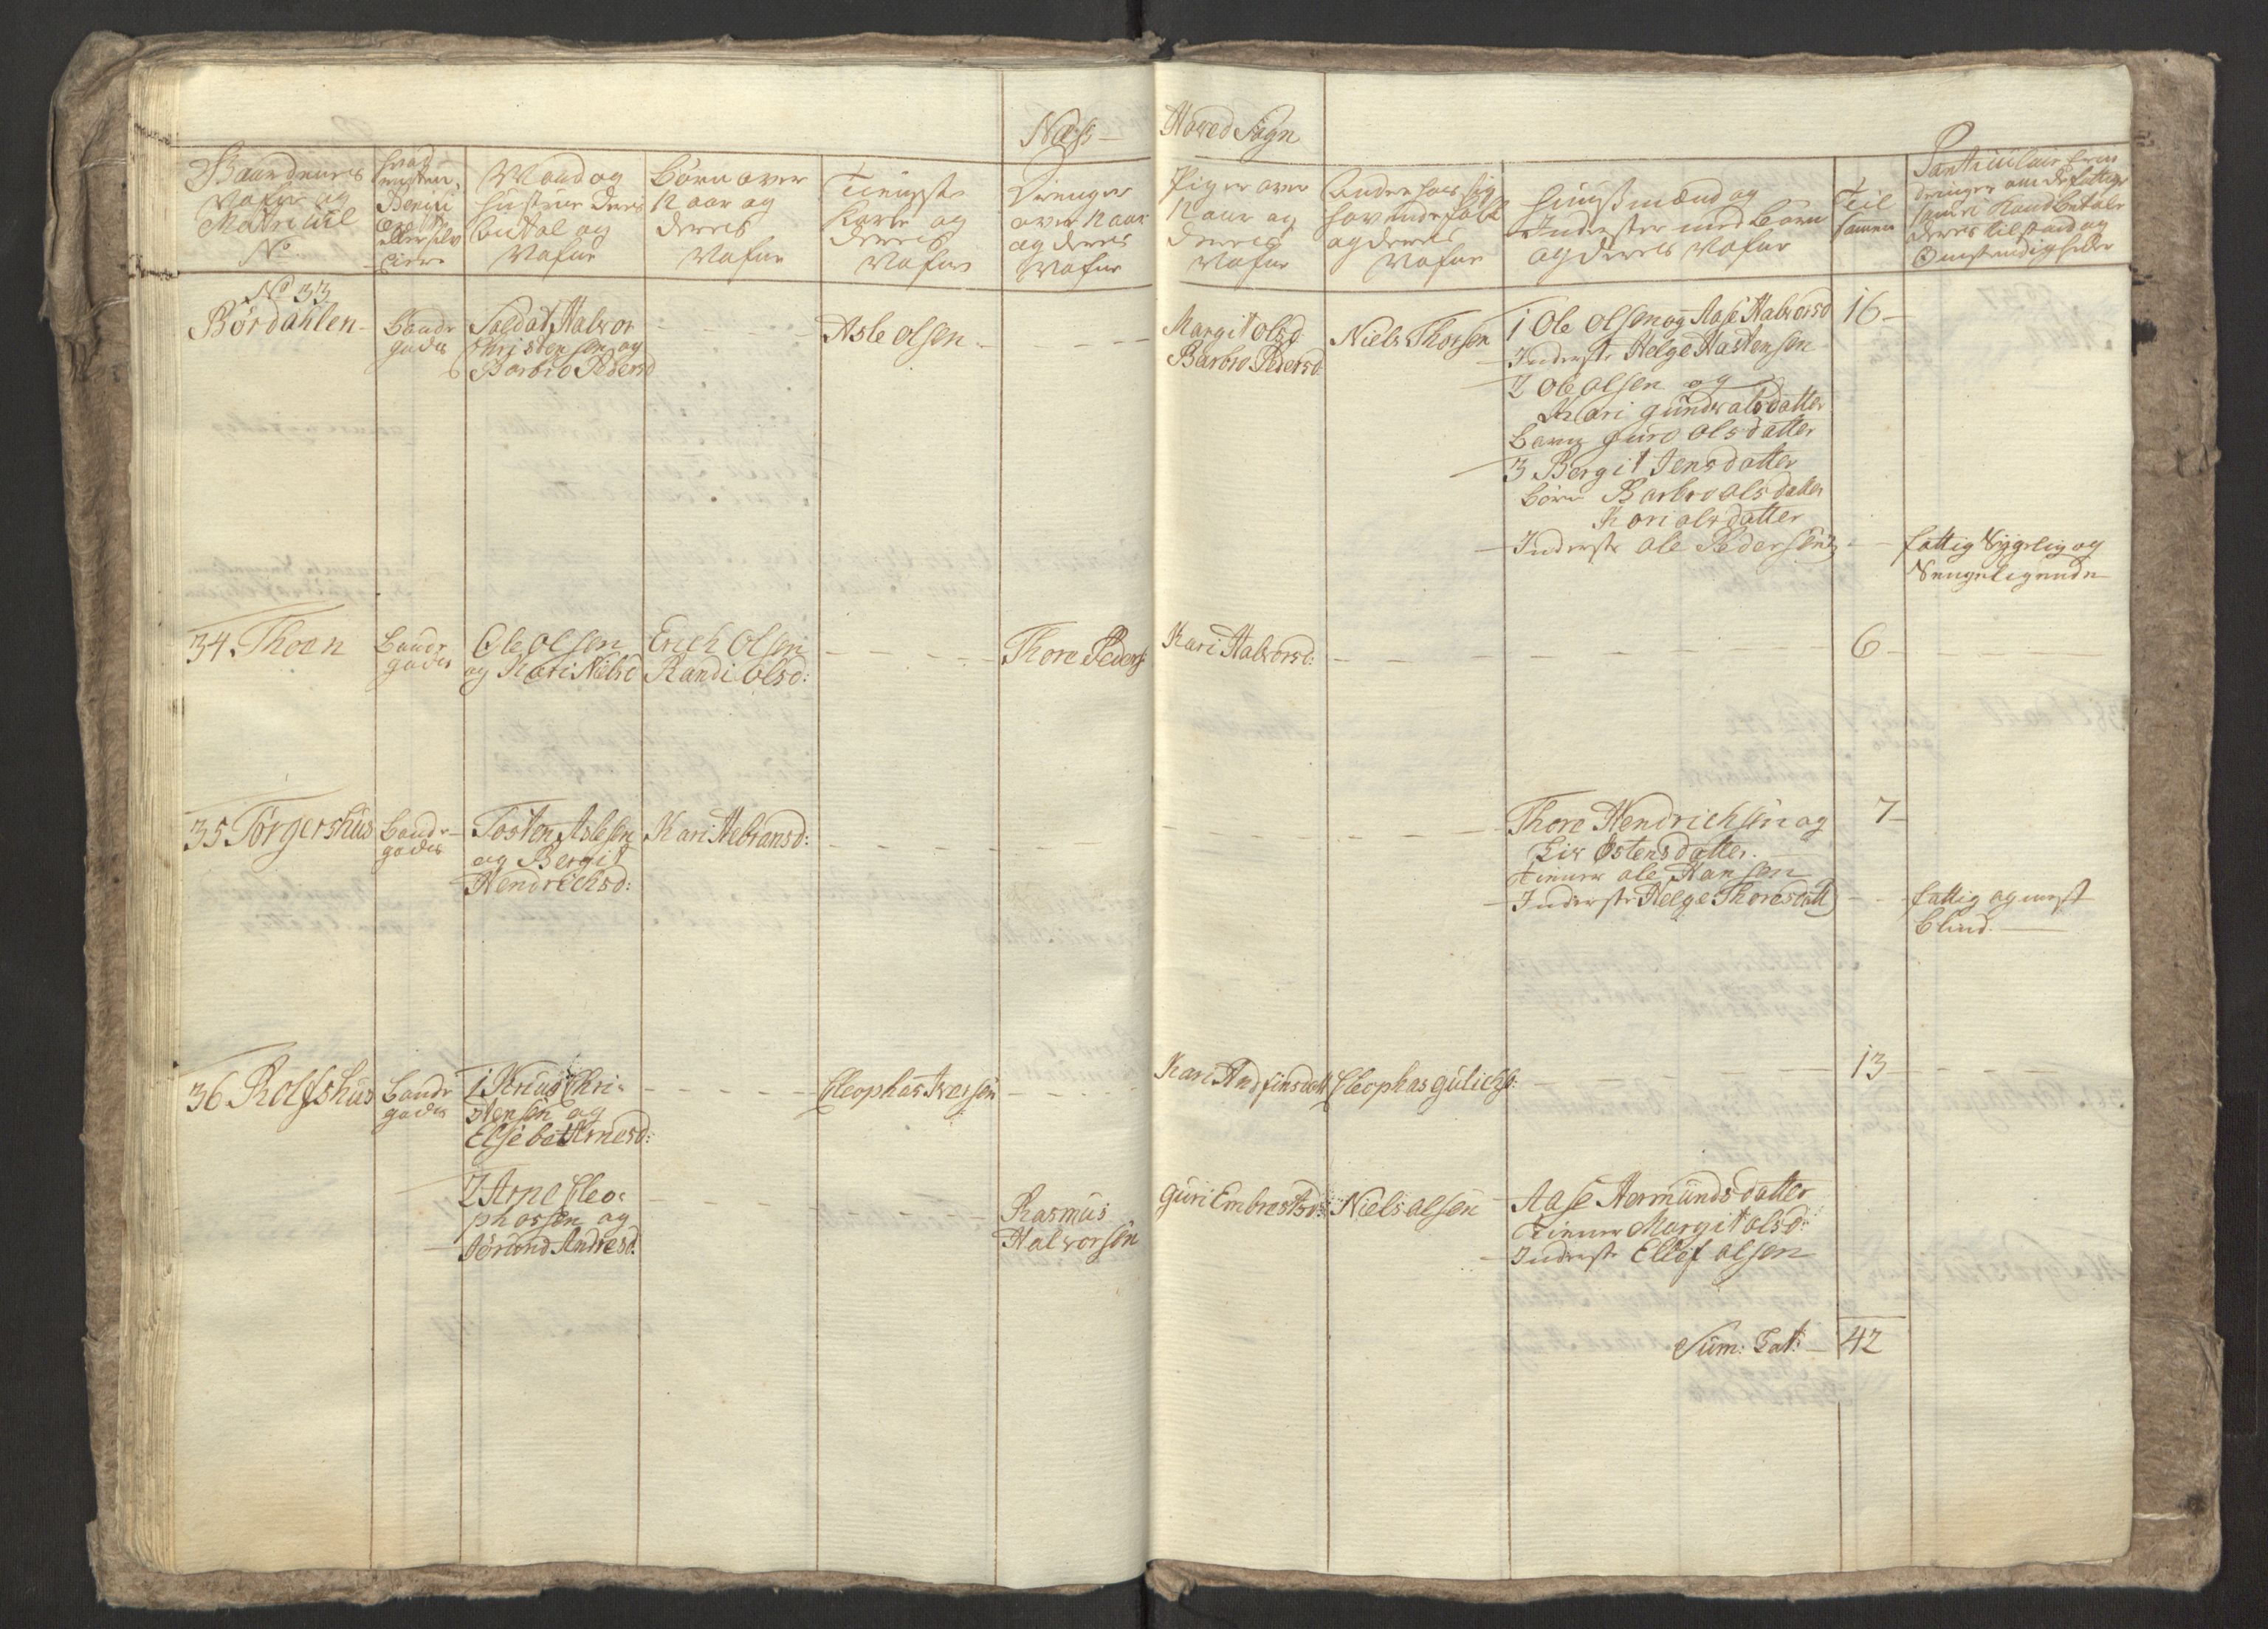 Næss
Hoved Sogn
Baandenes
Nafne og
Matricul
No
Mand og
Hustrue deres
Antal og
Nafne
Børn over
12 aar og
deres
Nafne
Tieneste
Karle og
deres
Nafne
Drenge
over 12 aar
og deres
Nafne
Piger over
12 aar og
deres
Nafne
Andre hos sig
havende folk
og deres
Nafne
Huusmænd og
Inderster med Børn
og deres Nafne
Til
sammen
Particulair Erin
dringer om de fattige
deres tilstand og
Omstændigheder
No 33
Børdahlen
Bonde
gods
Soldat Halvor
Christensen og
Barbro Pedersd
Asle Olsen
Margit Olsd
Barbro Pedersd
Niels Thorsen
1 Ole Olsen og Aase Halvorsd
Inderste Helge Hastensen
2 Ole Olsen og
Kari Gundvalsdatter
Barn Guro Olsdatter
3 Bergit Jensdatter
Børn Barbro Olsdatter
Kari Olsdatter
Inderste Ole Pedersen
16
fattig Sygelig og
Sengeliggende
34. Thoen
Bonde
gods
Ole Olsen
og Kari Nielsd
Erich Olsen
Randi Olsd:
Thore Peders
Kari Halvorsd:
6
35 Torgershus
Bonde
gods
Tosten Aslesen
og Bergit
Hendrichsd:
Kari Hebransd:
Thore Hendrichsen og
Liv Østensdatter
tiener Ole Hansen
Inderste Helge Thoresdatt
7
fattig og mest
blind
36 Rolfshus
Bonde
gods
1 Knud Chri-
stensen og
Elsebet Arnesd:
Cleophas Iversen
Kari Andfinsdatt
Cleophas Gulichs:
13
2 Arne Cleo-
phassen og
Jørund Andresd.
Rasmus
Halvorsen
Guri Embrestsd:
Niels Olsen
Aase Hermundsdatter
tiener Margit Olsd:
Inderste Ellef Olsen
Sum: Lat:
42